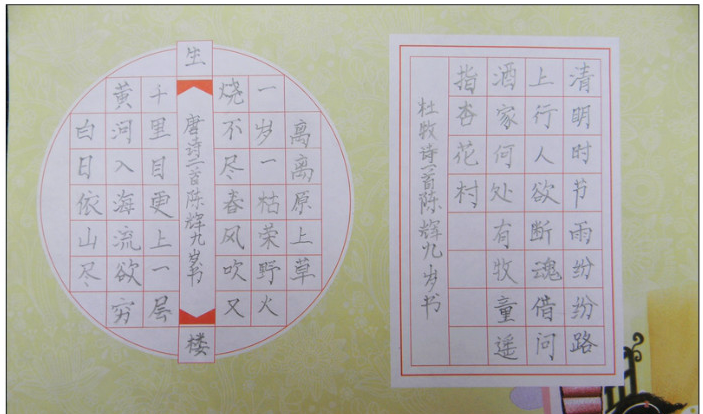 清明时节雨纷纷路
上行人欲断魂借问
酒家何处有牧童遥
指杏花村
杜牧诗一首陈辉九岁书
离离原上草
一岁一枯荣野火
烧不尽春风吹又
生
唐诗二首陈辉九岁书
白日依山尽
黄河入海流欲穷
千里目更上一层
楼